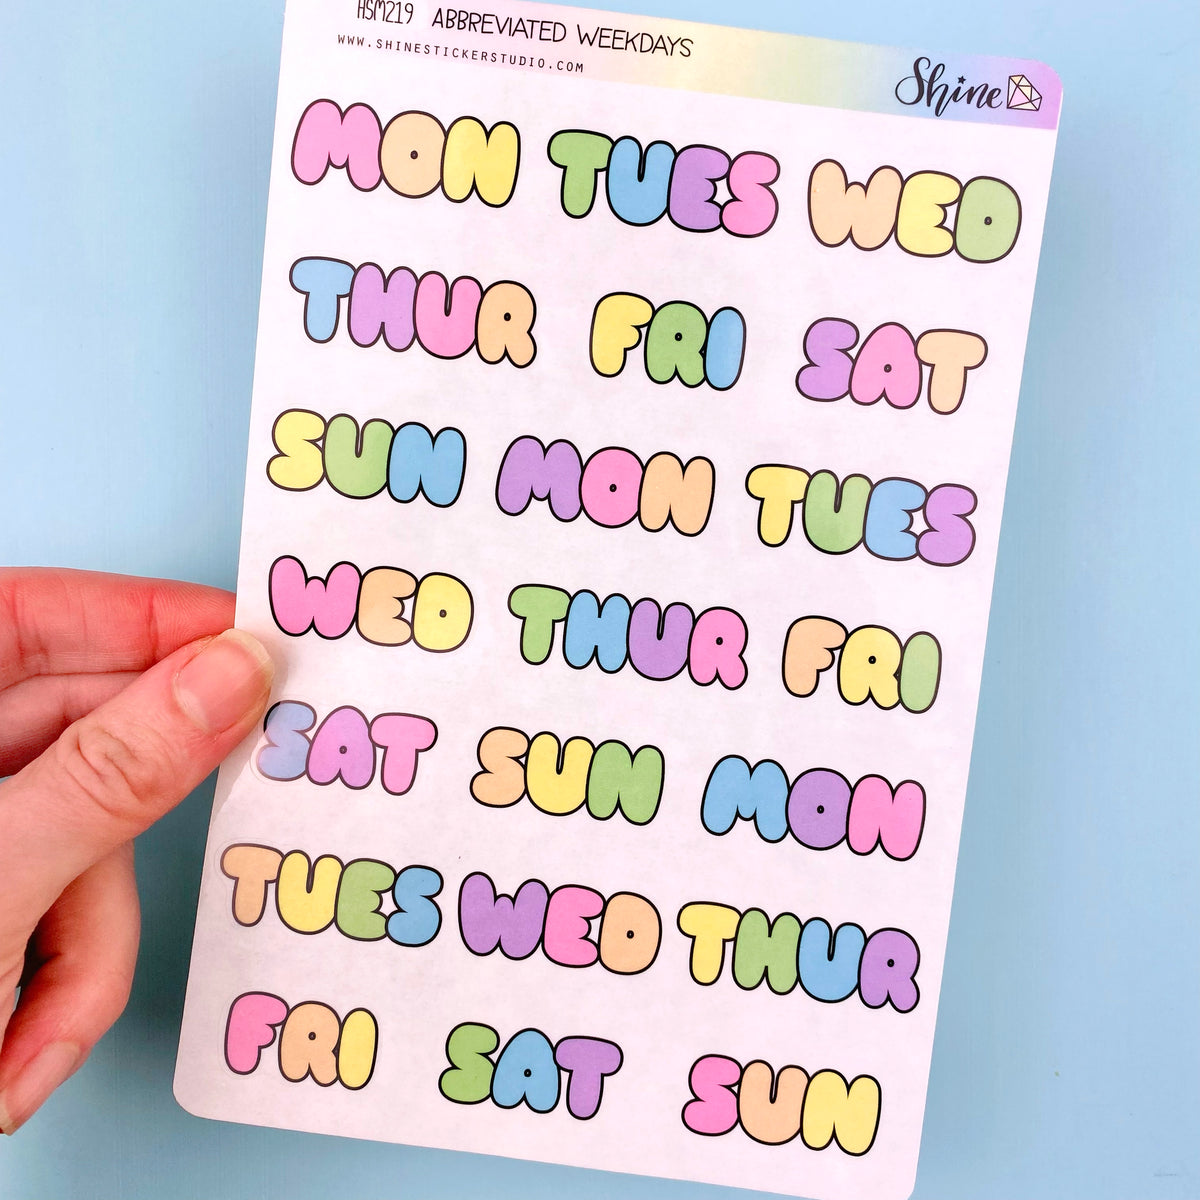 HSM219 ABBREVIATED WEEKDAYS
WWW.SHINESTICKERSTUDIO.COM
Shine
MON TUES WED
THUR FRI SAT
SUN MON TUES
WED THUR FRI
SAT SUN MON
TUES WED THUR
FRI SAT SUN